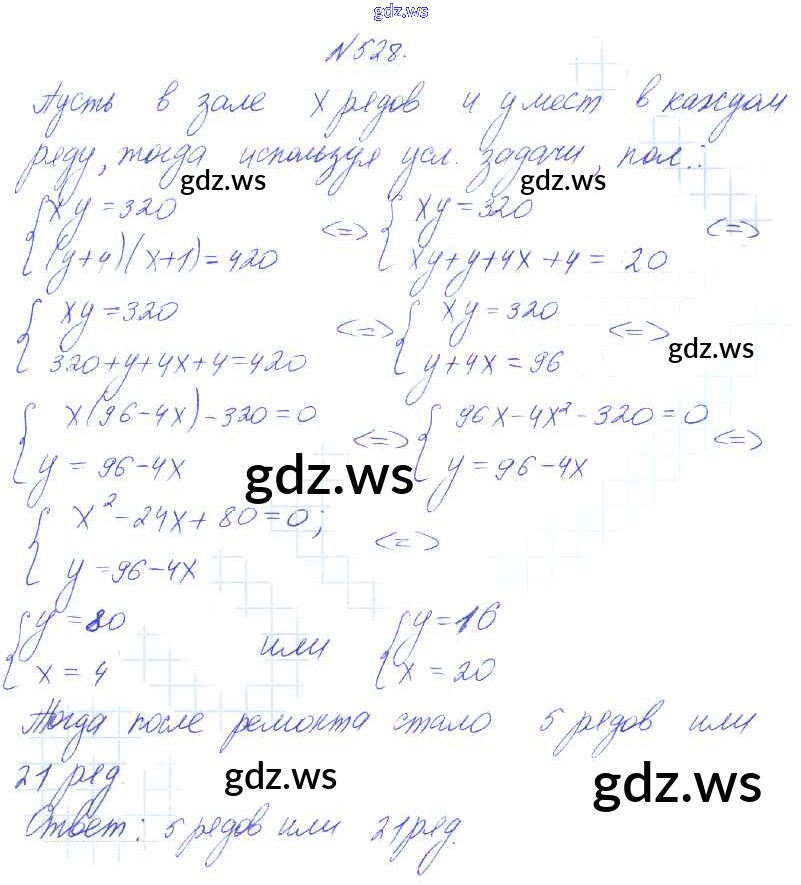 gdz.ws
№528.
Пусть в зале x рядов и y мест в каждом
ряду, тогда используя усл. задачи, пол.:
gdz.ws gdz.ws
{ xy=320 <=> { xy=320 <=>
{ (y+4)(x+1)=420 { xy+y+4x+4= 20
{ xy=320 <=> { xy=320 <=>
{ 320+y+4x+4=420 { y+4x=96
gdz.ws
{ x(96-4x)-320=0 <=> { 96x-4x²-320=0 <=>
{ y=96-4x { y=96-4x
gdz.ws
{ x²-24x+80=0; <=>
{ y=96-4x
{ y=80 или { y=16
{ x=4 { x=20
Тогда после ремонта стало 5 рядов или
21 ряд.
gdz.ws gdz.ws
Ответ: 5 рядов или 21 ряд.